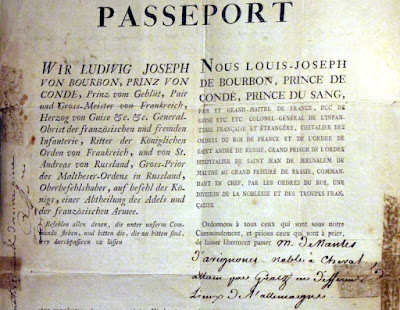 PASSEPORT
WIR LUDWIG JOSEPH
VON BOURBON, PRINZ VON
CONDE, Prinz vom Geblüt, Pair
und Gross-Meister von Frankreich,
Herzog von Guise &c. &c. General-
Obrist der französischen und fremden
Infanterie, Ritter der Königlichen
Orden von Frankreich, und von St.
Andreas von Russland, Gross-Prior
der Maltheser-Ordens in Russland,
Oberbefehlshaber, auf befehl des Kö-
nigs, einer Abtheilung des Adels und
der französischen Armee.
Befehlen allen denen, die unter unserm Com-
mando stehen, und bitten die, die zu bitten sind,
durchpassiren zu lassen
NOUS LOUIS-JOSEPH
DE BOURBON, PRINCE DE
CONDÉ, PRINCE DU SANG,
PAIR ET GRAND-MAITRE DE FRANCE, DUC DE
GUISE ETC. ETC. COLONEL GÉNÉRAL DE L'INFAN-
TERIE FRANÇAISE ET ÉTRANGÈRE, CHEVALIER DES
ORDRES DU ROI DE FRANCE ET DE L'ORDRE DE
SAINT ANDRÉ DE RUSSIE, GRAND PRIEUR DE L'ORDRE
HOSPITALIER DE SAINT JEAN DE JERUSALEM DE
MALTHE AU GRAND PRIEURÉ DE RUSSIE, COMMAN-
DANT EN CHEF, PAR LES ORDRES DU ROI, UNE
DIVISION DE LA NOBLESSE ET DES TROUPES FRAN-
ÇAISES.
Ordonnons à tous ceux qui sont sous notre
Commandement, et prions ceux qui sont à prier,
de laisser librement passer M. de Nantes
D'avignonet noble à Cheval
allant par
Lieux de L'allemagne